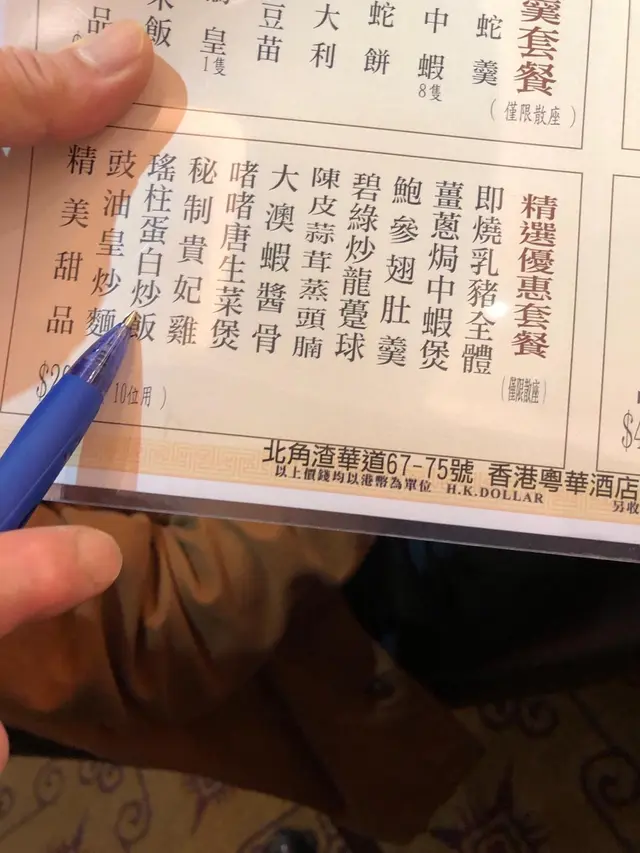 羹套餐
( 僅限散座 )
蛇羹
中蝦
8隻
蛇餅
大利
豆苗
皇
1隻
飯
品
精選優惠套餐
(僅限散座)
即燒乳豬全體
薑蔥焗中蝦煲
鮑參翅肚羹
碧綠炒龍躉球
陳皮蒜茸蒸頭腩
大澳蝦醬骨
啫啫唐生菜煲
秘制貴妃雞
瑤柱蛋白炒飯
豉油皇炒麵
精美甜品
10位用 )
北角渣華道67-75號 香港粵華酒店
以上價錢均以港幣為單位 H.K.DOLLAR
另收